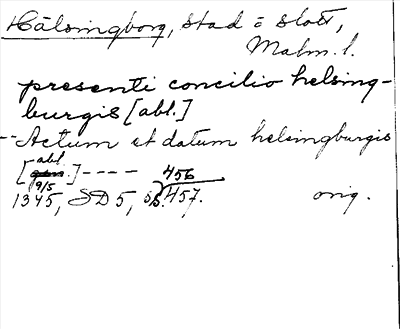 Hälsingborg, stad o slott,
Malm. l.
presenti concilio helsing-
burgis [abl.]
-- Actum et datum helsingburgis
[abl.] ---- 456
9/5
1345, SD 5, s. 457. orig.